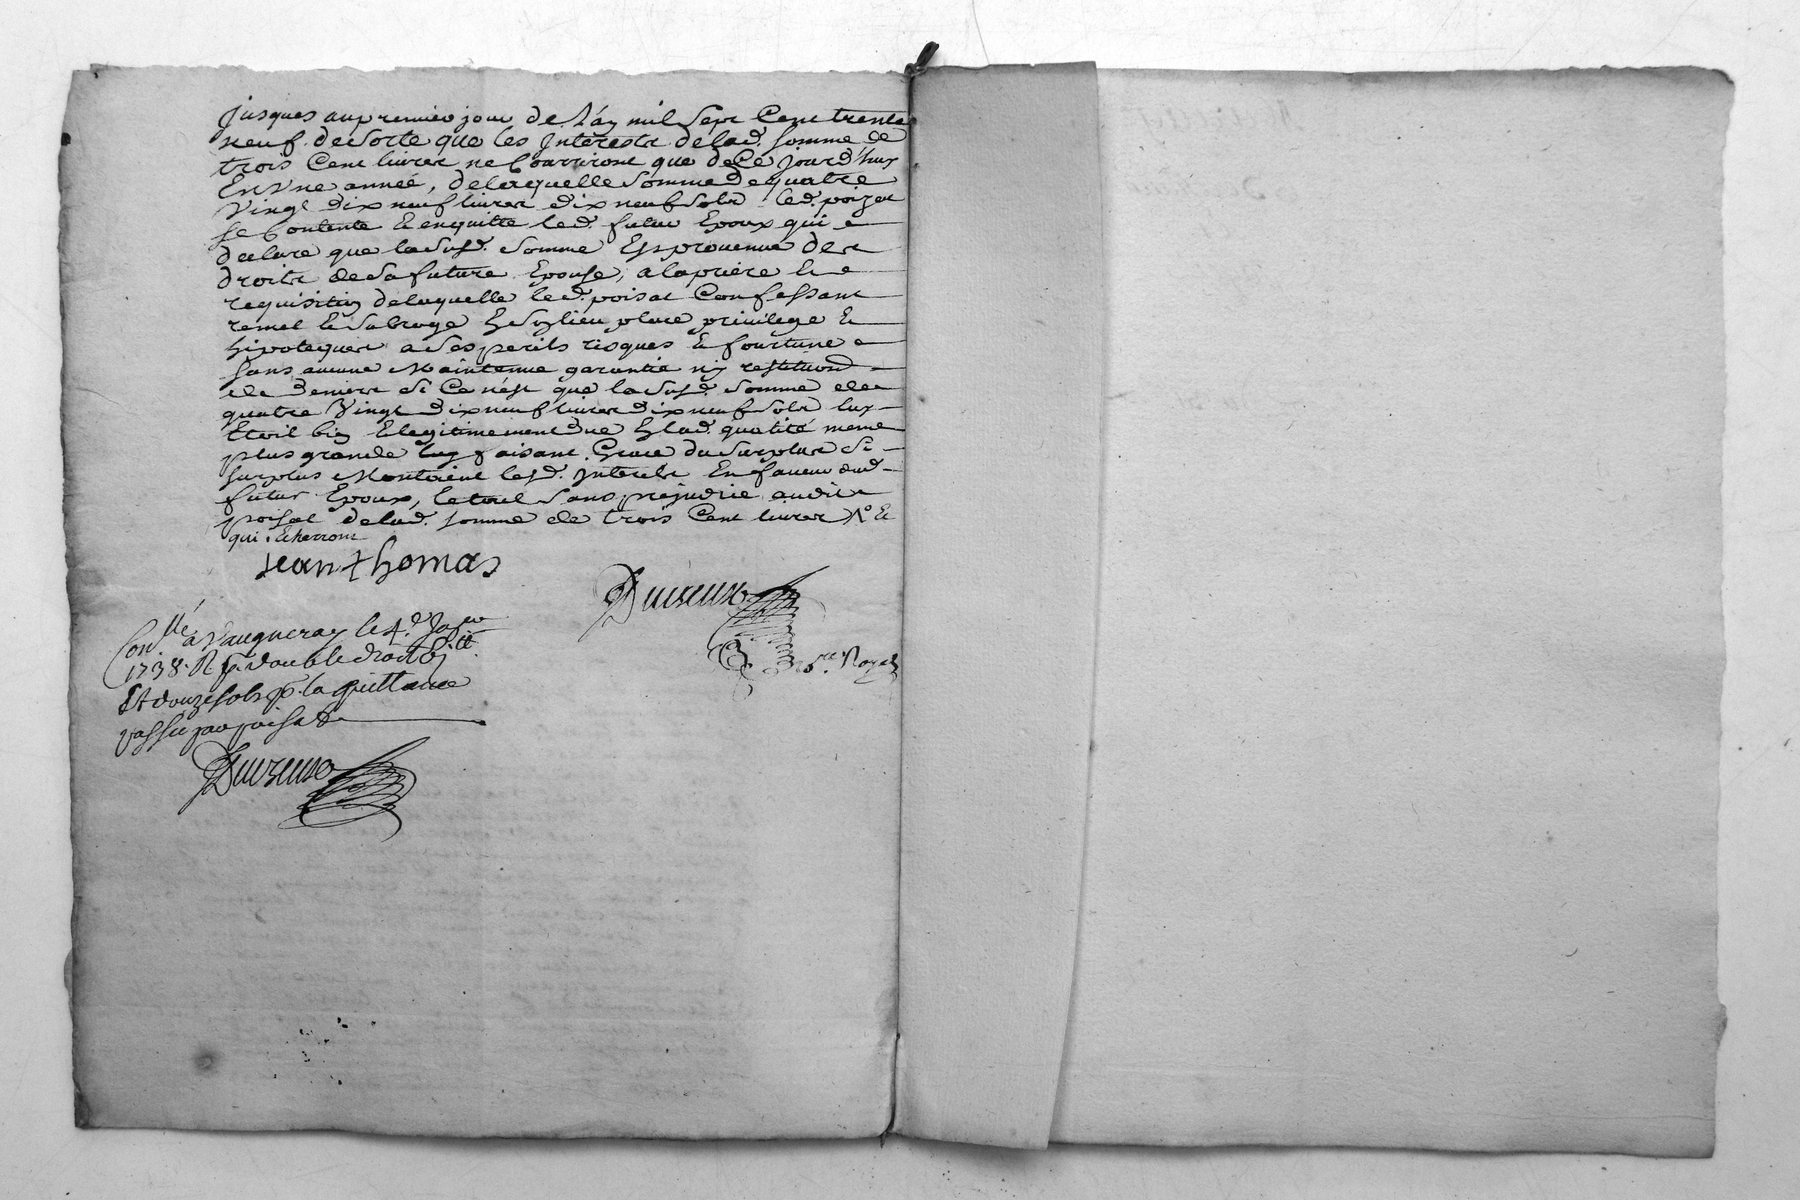 jusques au premier jour de l'an mil sept Cent trente
neuf. de sorte que les Interests de lad. somme de
trois Cent livres ne Courriront que de Ce jourd'huy
En Vne année, de laquelle somme de quatre
Vingt dix neuf livres dix neuf sols led. poizat
se Contente & enquitte led. futur Epoux qui
declare que la susd. somme Est prouenue des
droits de sa future Epouse, a la priere &
requisition de laquelle led. poisat Confessant
remet & subroge En son lieu place privilege &
hipoteques a ses perils risques & fourtune
sans aucune Maintenue garantie ny restitution
de deniers si Ce n'est que la susd. somme de
quatre Vingt dix neuf livres dix neuf sols luy
Etoit bien & legitimement due En lad. qualité meme
plus grande luy faisant Grace du surplus si
surplus Montoient lesd. Interets En faueur dud.
futur Epoux, le tout sans prejudice audit
poisat de lad. somme de trois Cent livres &
qui Echerront
jean thomas
Duvseux
no.re Royal
Con.llé a Vaugneray le 4.e Ja.er
1738. R. p. double droit
Et douze sols p. la quittance
passée par poisat
Duvseux